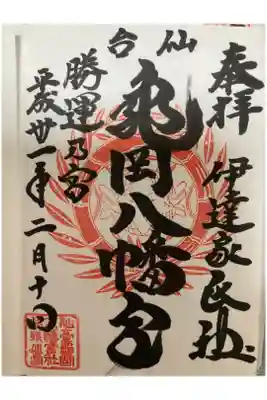 奉拝
伊達家氏社
仙台
亀岡八幡宮
勝運乃宮
平成廿一年二月十日